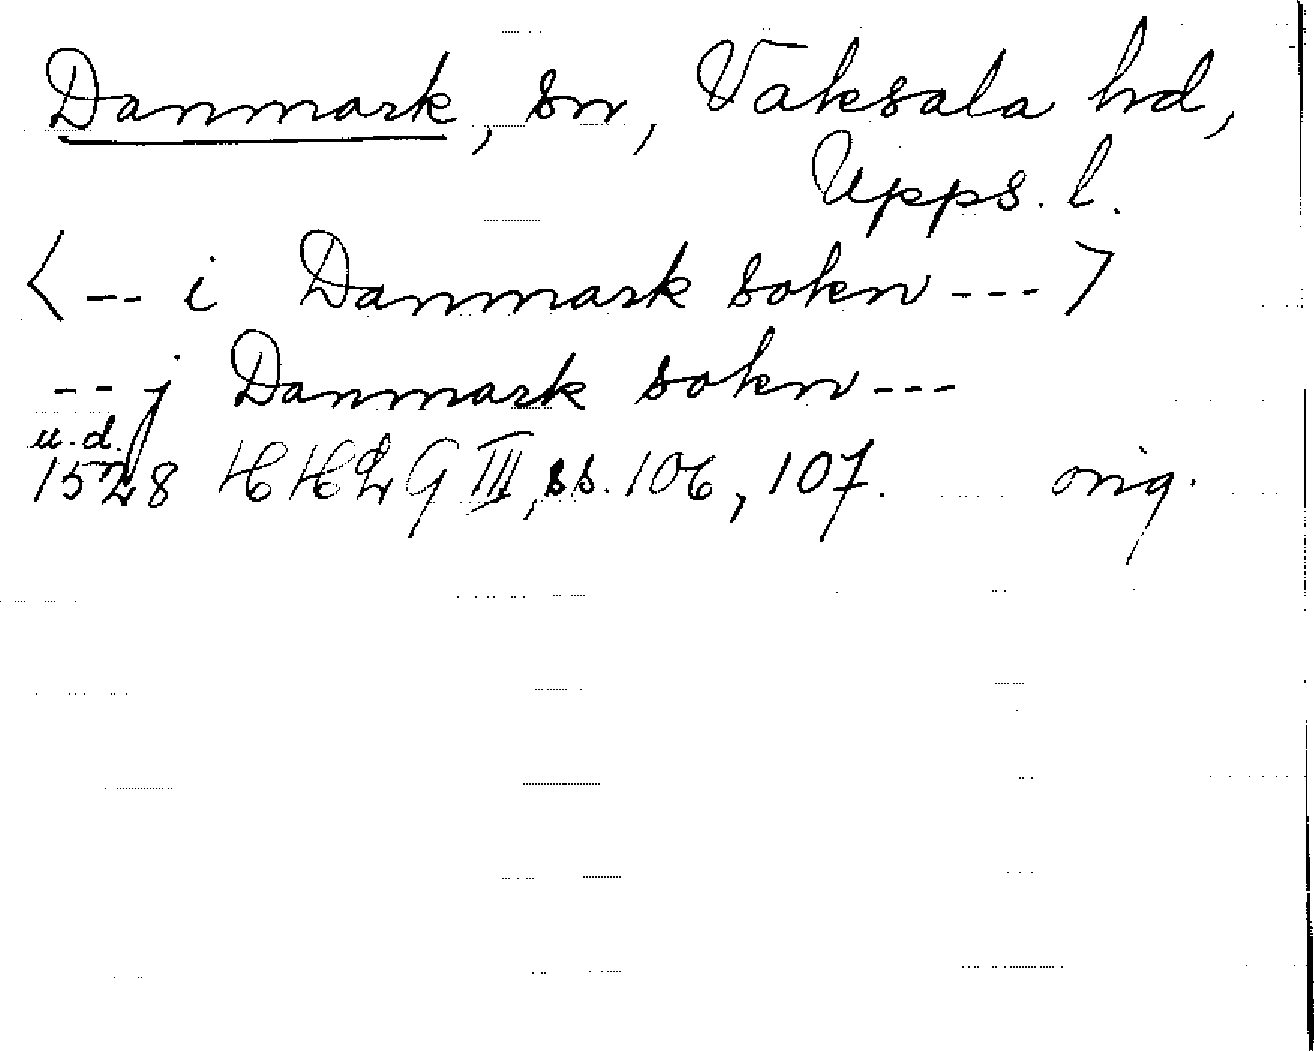 Danmark, sn, Vaksala hd,
Upps. l.
<-- i Danmark sokn --->
-- j Danmark sokn ---
u. d.
1528 HHLG III, ss. 106, 107. orig.